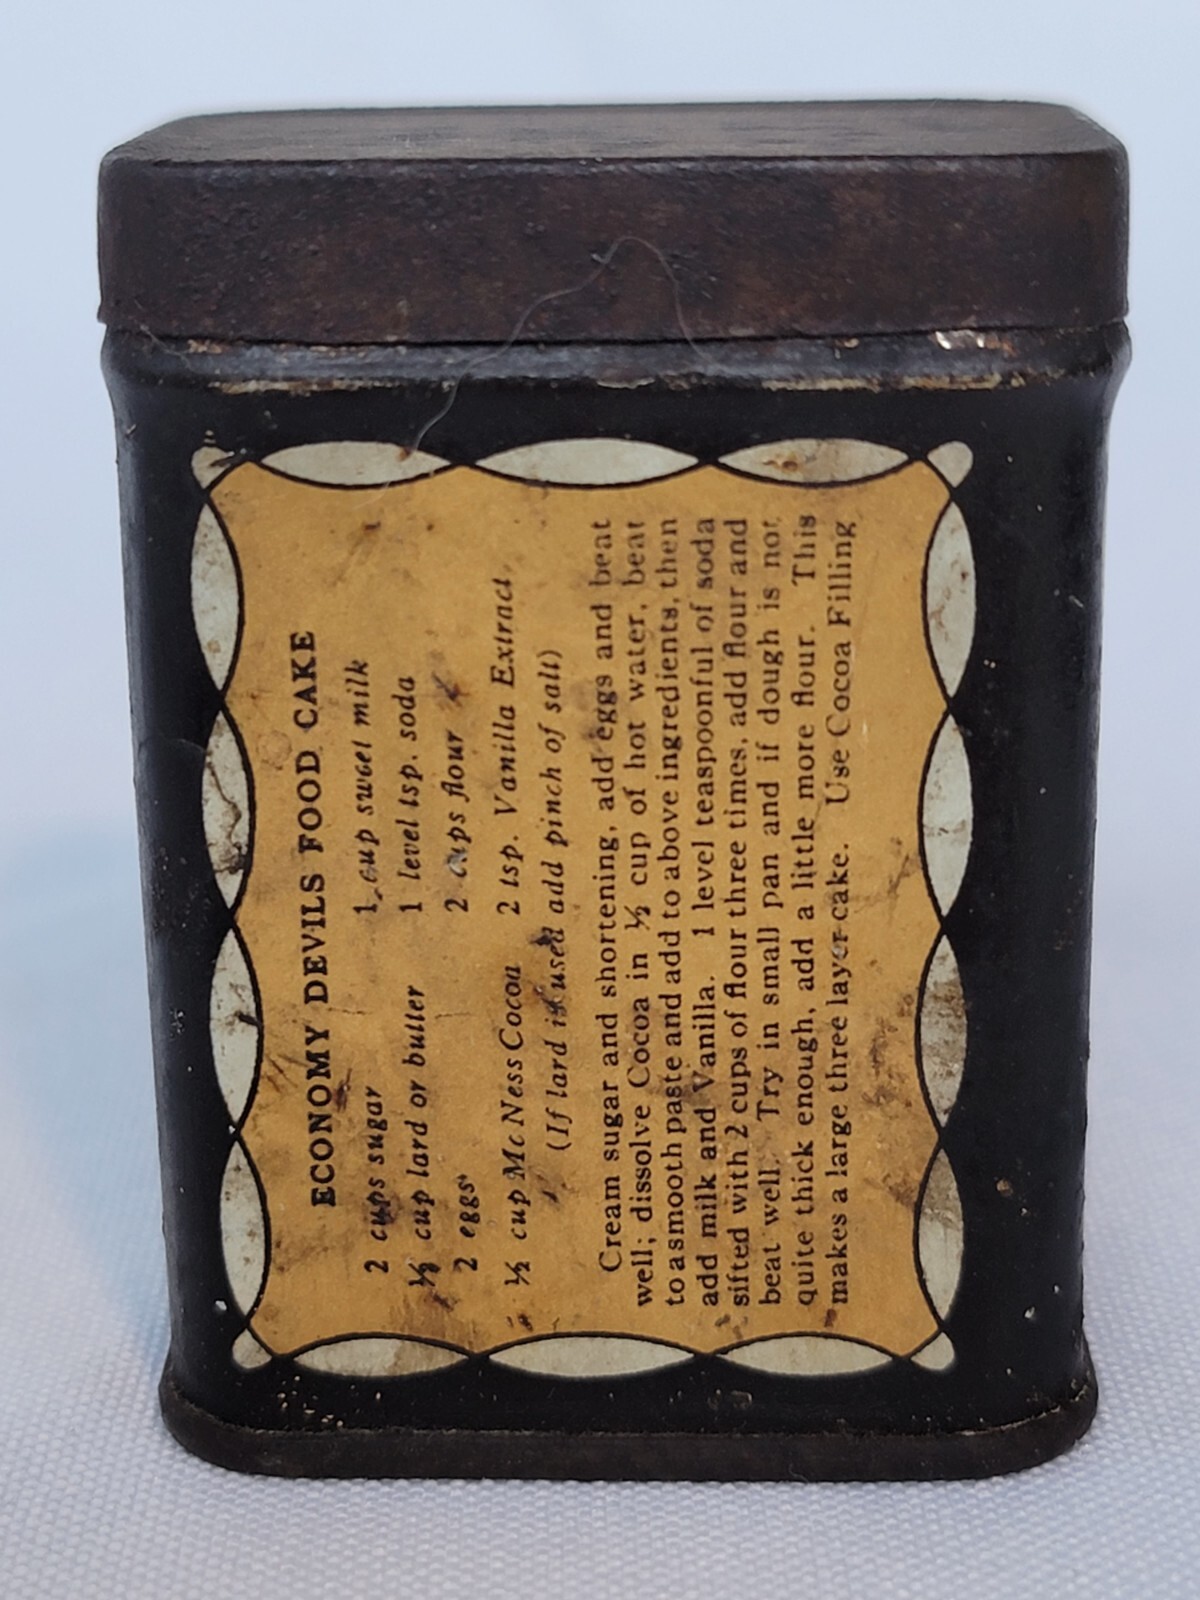 ECONOMY DEVILS FOOD CAKE
2 cups sugar 1 cup sweet milk
½ cup lard or butter 1 level tsp. soda
2 eggs 2 cups flour
½ cup McNess Cocoa 2 tsp. Vanilla Extract
(If lard is used add pinch of salt)
Cream sugar and shortening, add eggs and beat
well; dissolve Cocoa in ½ cup of hot water, beat
to a smooth paste and add to above ingredients, then
add milk and Vanilla. 1 level teaspoonful of soda
sifted with 2 cups of flour three times, add flour and
beat well. Try in small pan and if dough is not
quite thick enough, add a little more flour. This
makes a large three layer cake. Use Cocoa Filling